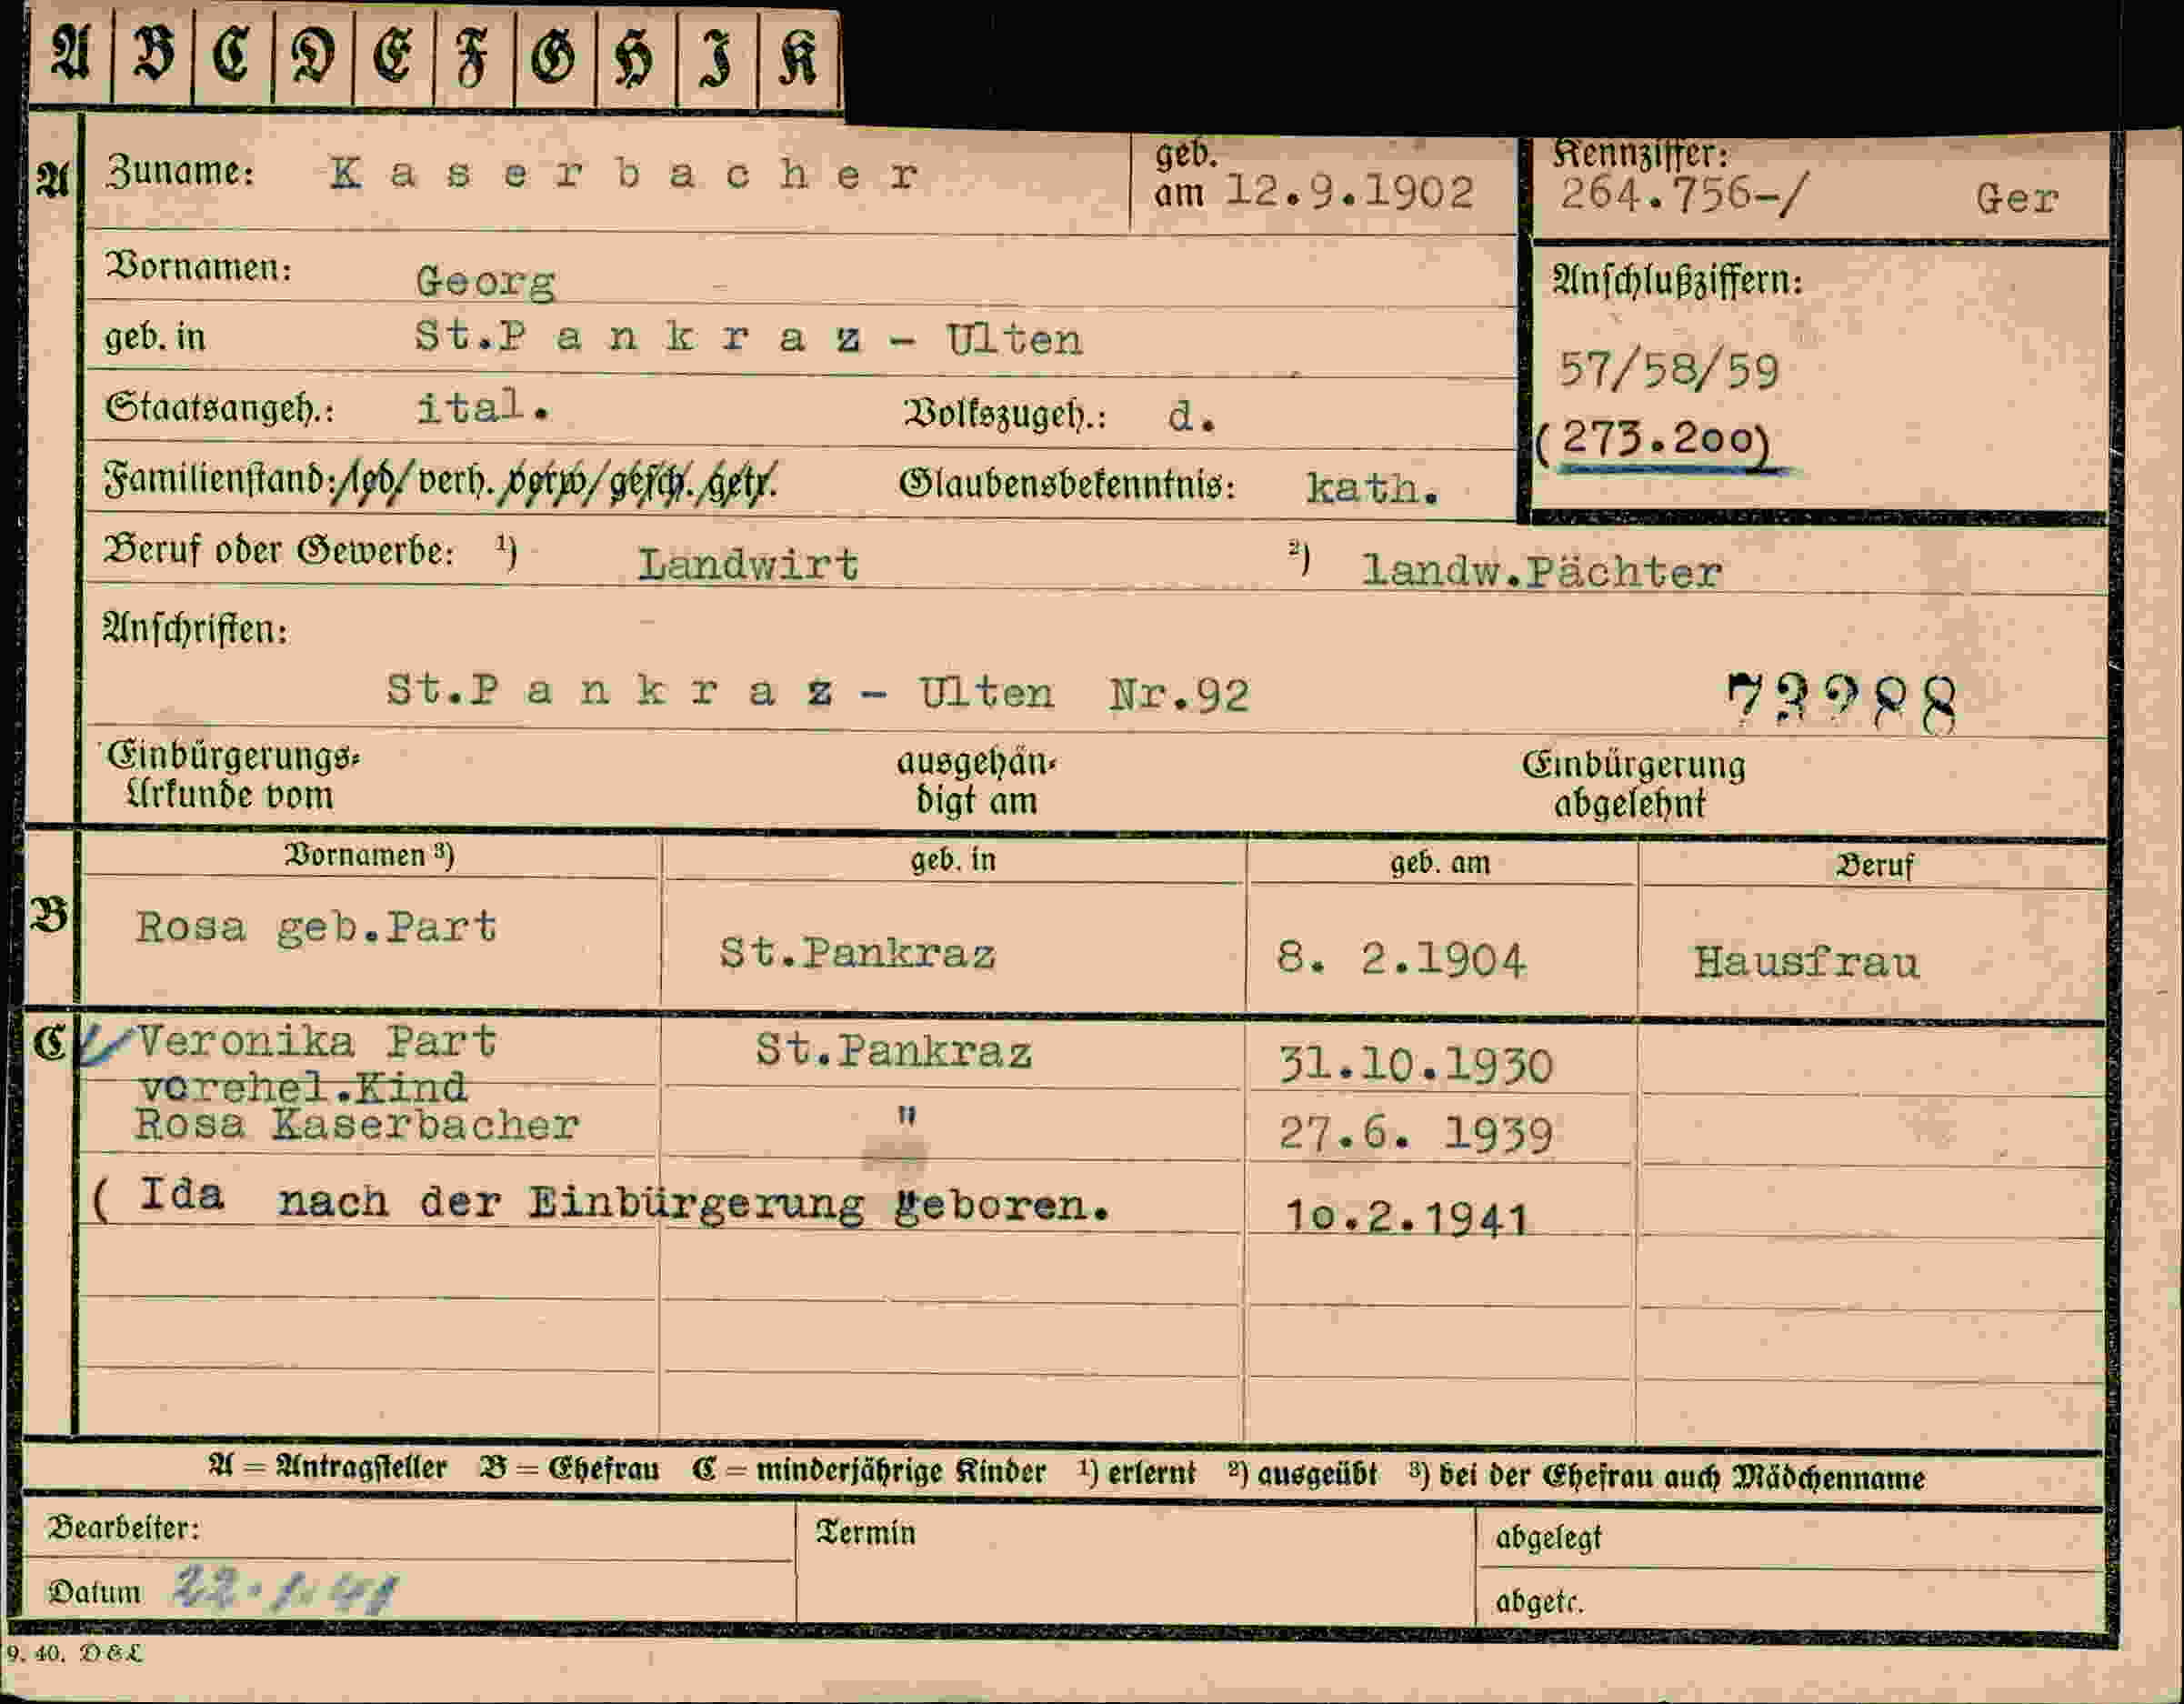 A B C D E F G H I K
A Zuname: Kaserbacher geb. am 12.9.1902 Kennziffer: 264.756-/ Ger
Vornamen: Georg
Anschlußziffern:
geb. in St.Pankraz - Ulten
57/58/59
Staatsangeh.: ital. Volkszugeh.: d.
(273.200)
Familienstand: led/ verh. verw/ gesch. getr. Glaubensbekenntnis: kath.
Beruf oder Gewerbe: ¹) Landwirt ²) landw.Pächter
Anschriften:
St.Pankraz - Ulten Nr.92
Einbürgerungs-
Urkunde vom
ausgehän-
digt am
Einbürgerung
abgelehnt
Vornamen ³) geb. in geb. am Beruf
B Rosa geb.Part St.Pankraz 8. 2.1904 Hausfrau
C Veronika Part St.Pankraz 31.10.1930
vorehel.Kind
Rosa Kaserbacher " 27.6. 1939
( Ida nach der Einbürgerung geboren. 10.2.1941
A = Antragsteller B = Ehefrau C = minderjährige Kinder ¹) erlernt ²) ausgeübt ³) bei der Ehefrau auch Mädchenname
Bearbeiter: Termin abgelegt
Datum 22.1.41 abgetr.
9. 40. D&L